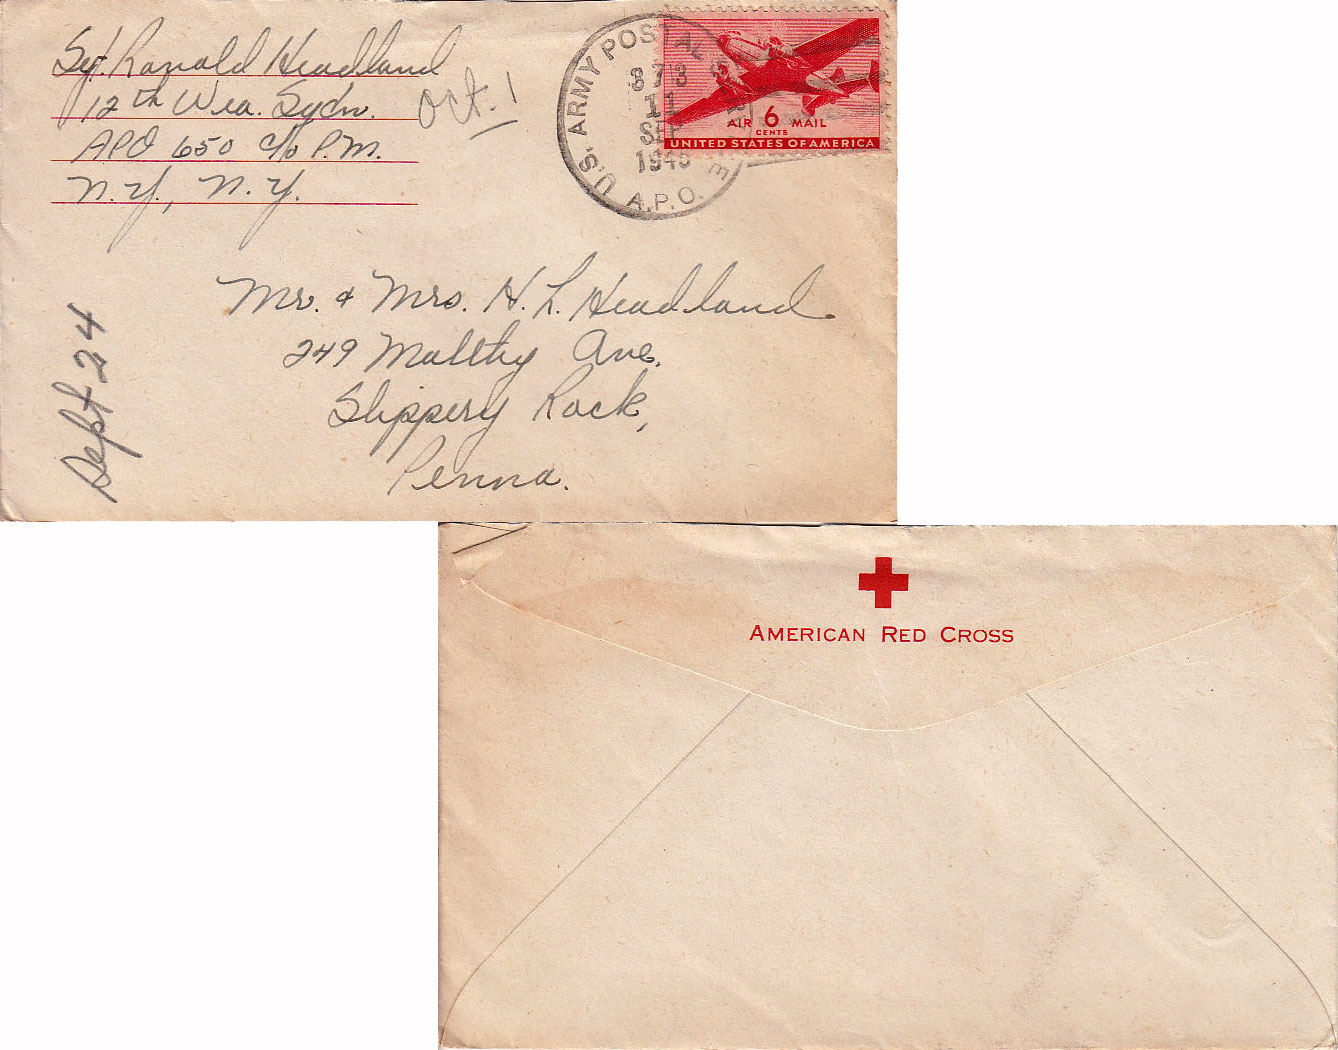 Sgt. Ronald Headland
12th Wea. Sqdn.
APO 650 c/o P.M.
N.Y., N.Y.
Oct. 1
U.S. ARMY POSTAL
11
SEP
1945
A.P.O.
AIR 6 MAIL
CENTS
UNITED STATES OF AMERICA
Mr. & Mrs. H. L. Headland
249 Maltby Ave.
Slippery Rock,
Penna.
Sept 24
AMERICAN RED CROSS